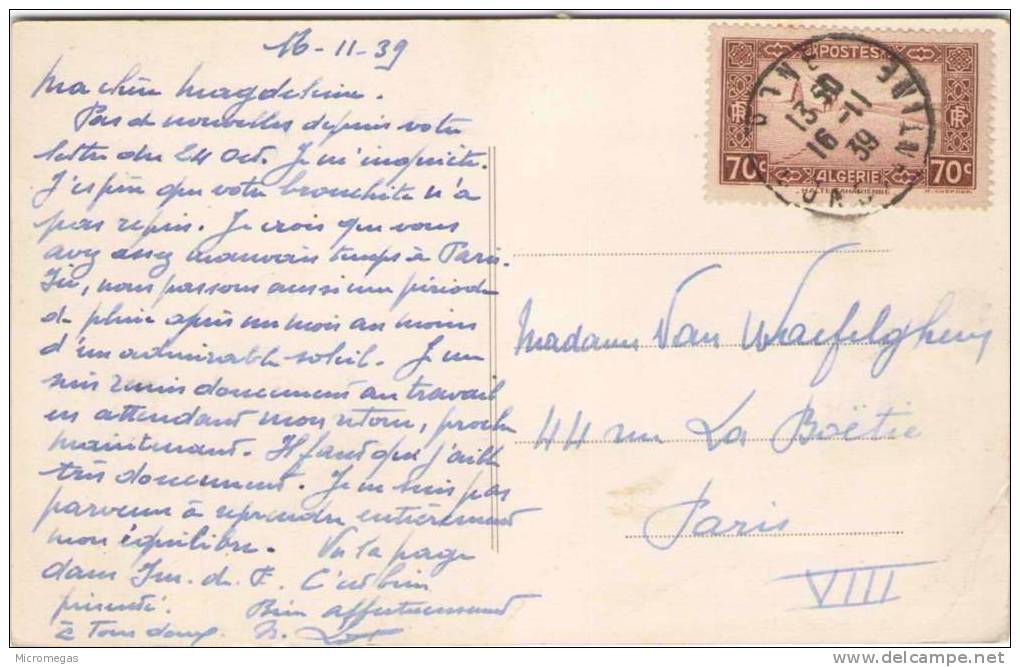 16-11-39
Ma chère Magdeleine.
Pas de nouvelles depuis votre
lettre du 24 Oct. Je m'inquiète.
J'espère que votre bronchite n'a
pas repris. Je crois que vous
avez assez mauvais temps à Paris.
Ici, nous passons aussi une période
de pluie après un mois au moins
d'un admirable soleil. Je me
suis remis doucement au travail
en attendant mon retour, proche
maintenant. Il faut que j'aille
très doucement. Je ne suis pas
parvenu à reprendre entièrement
mon équilibre. Vu la page
dans Im. de F. C'est bien
présenté. Bien affectueusement
à tous deux.
POSTES
RF
RF
70c
ALGERIE
70c
HALTE SAHARIENNE
CONSTANTINE
13 30
16 -11
39
Madame Van Waefelghem
44 rue La Boëtie
Paris
VIII
Micromegas
http://www.delcampe.net